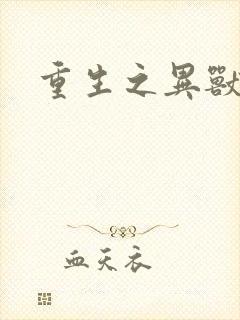 重生之異獸
血天衣